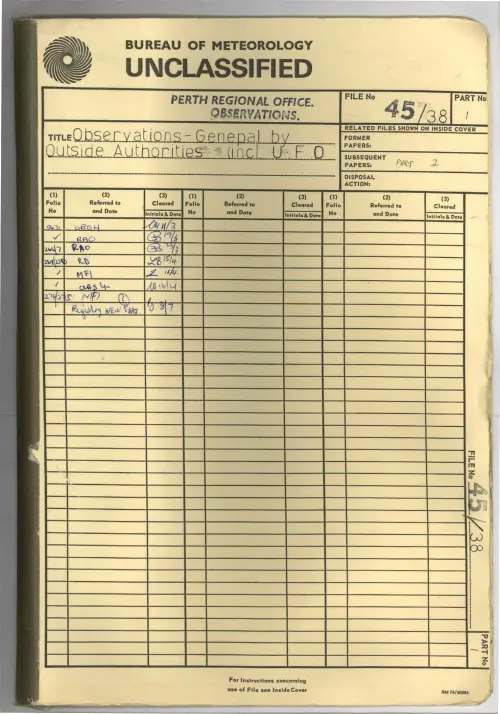 BUREAU OF METEOROLOGY
UNCLASSIFIED
PERTH REGIONAL OFFICE.
OBSERVATIONS.
FILE No 45/38
PART No 1
RELATED FILES SHOWN ON INSIDE COVER
TITLE Observations - Genepal by
Outside Authorities (incl U F O
FORMER PAPERS:
SUBSEQUENT PAPERS: PART 2
DISPOSAL ACTION:
(1) Folio No (2) Referred to and Date (3) Cleared Initials & Date (1) Folio No (2) Referred to and Date (3) Cleared Initials & Date (1) Folio No (2) Referred to and Date (3) Cleared Initials & Date
OBS 4 11/3
✓ RAO 19/3
RAO
RD 15/4
✓ MFI
✓ OBS 4 16/4
MFI 1
Registry NEW PART 3/7
FILE No 45/38
PART No 1
For Instructions concerning
use of File see Inside Cover